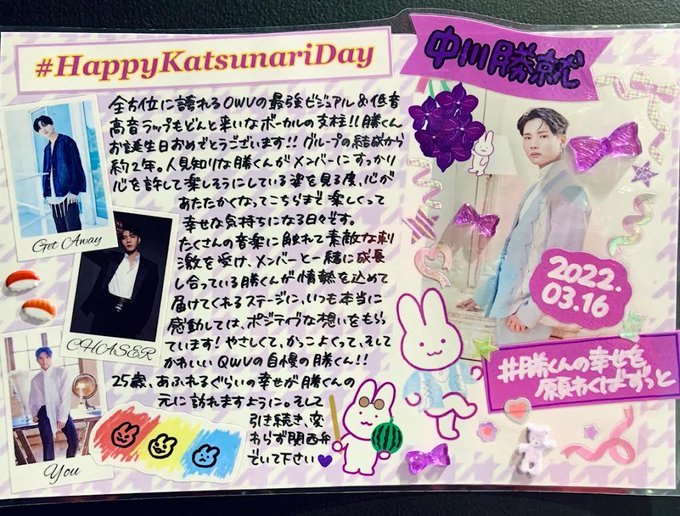 #HappyKatsunariDay
全方位に誇れるOWVの最強ビジュアル&低音
高音ラップもどんと来いなボーカルの支柱!!勝くん
お誕生日おめでとうございます!!グループの結成から
約2年。人見知りな勝くんがメンバーにすっかり
心を許して楽しそうにしている姿を見る度、心が
あたたかくなってこちらまで楽しくって
幸せな気持ちになる日々です。
たくさんの音楽に触れて素敵な刺
激を受け、メンバーと一緒に成長
し合っている勝くんが情熱を込めて
届けてくれるステージに、いつも本当に
感動しては、ポジティヴな想いをもらっ
ています!やさしくて、かっこよくって、そして
かわいいQWVの自慢の勝くん!!
25歳、あふれるぐらいの幸せが勝くんの
元に訪れますように。そして
引き続き、変
わらず関西弁
でいて下さい
Get Away
CHASER
You
中川勝就
2022.
03.16
#勝くんの幸せを
願わくばずっと